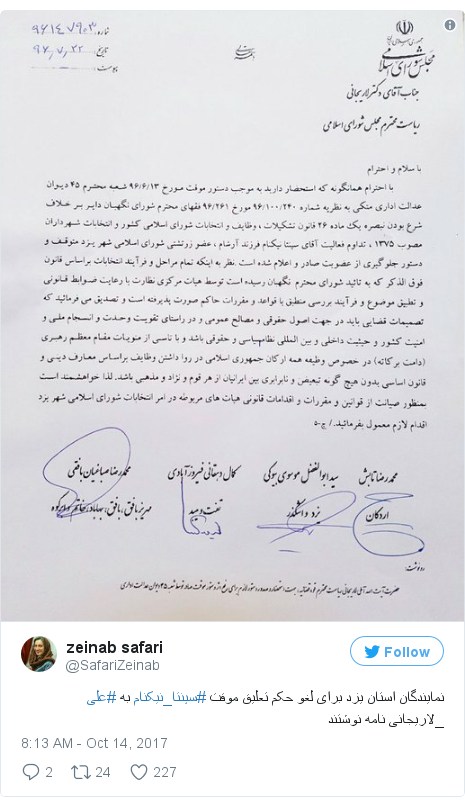 شماره ۹۶۱۴۷۹۰۳
تاریخ ۹۶,۷,۲۲
پیوست
جمهوری اسلامی ایران
مجلس شورای اسلامی
جناب آقای دکتر لاریجانی
ریاست محترم مجلس شورای اسلامی
با سلام و احترام
با احترام همانگونه که استحضار دارید به موجب دستور موقت مورخ ۹۶/۶/۱۳ شعبه محترم ۴۵ دیوان
عدالت اداری متکی به نظریه شماره ۹۶/۱۰۰/۲۴۰ مورخ ۹۶/۲۶۱ فقهای محترم شورای نگهبان دایر بر خلاف
شرع بودن تبصره یک ماده ۲۶ قانون تشکیلات ، وظایف و انتخابات شورای اسلامی کشور و انتخابات شهرداران
مصوب ۱۳۷۵ ، تداوم فعالیت آقای سپنتا نیکنام فرزند آرشام ، عضو زرتشتی شورای اسلامی شهر یزد متوقف و
دستور جلوگیری از عضویت صادر و اعلام شده است .نظر به اینکه تمام مراحل و فرآیند انتخابات براساس قانون
فوق الذکر که به تائید شورای محترم نگهبان رسیده است توسط هیات مرکزی نظارت با رعایت ضوابط قانونی
و تطبیق موضوع و فرآیند بررسی منطبق با قواعد و مقررات حاکم صورت پذیرفته است و تصدیق می فرمائید که
تصمیمات قضایی باید در جهت اصول حقوقی و مصالح عمومی و در راستای تقویت وحدت و انسجام ملی و
امنیت کشور و حیثیت داخلی و بین المللی نظام سیاسی و حقوقی باشد و با تاسی از منویات مقام معظم رهبری
(دامت برکاته) در خصوص وظیفه همه ارکان جمهوری اسلامی در روا داشتن وظایف براساس معارف دینی و
قانون اساسی بدون هیچ گونه تبعیض و نابرابری بین ایرانیان از هر قوم و نژاد و مذهبی باشد. لذا خواهشمند است
بمنظور صیانت از قوانین و مقررات و اقدامات قانونی هیات های مربوطه در امر انتخابات شورای اسلامی شهر یزد
اقدام لازم معمول بفرمائید./ ج-۵
محمدرضا تابش سید ابوالفضل موسوی بیوکی کمال دهقانی فیروزآبادی محمدرضا صباغیان بافقی
اردکان یزد و اشکذر تفت و میبد مهریز، بافق، ابرکوه، بهاباد، خاتم
رونوشت:
حضرت آیت الله آملی لاریجانی ریاست محترم قوه قضائیه، جهت استحضار و صدور دستور لازم برای رفع اثر دستور موقت صادره توسط شعبه ۴۵ دیوان عدالت اداری
zeinab safari
@SafariZeinab
Follow
نمایندگان استان یزد برای لغو حکم تعلیق موقت #سپنتا_نیکنام به #علی
_لاریجانی نامه نوشتند
8:13 AM - Oct 14, 2017
2 24 227